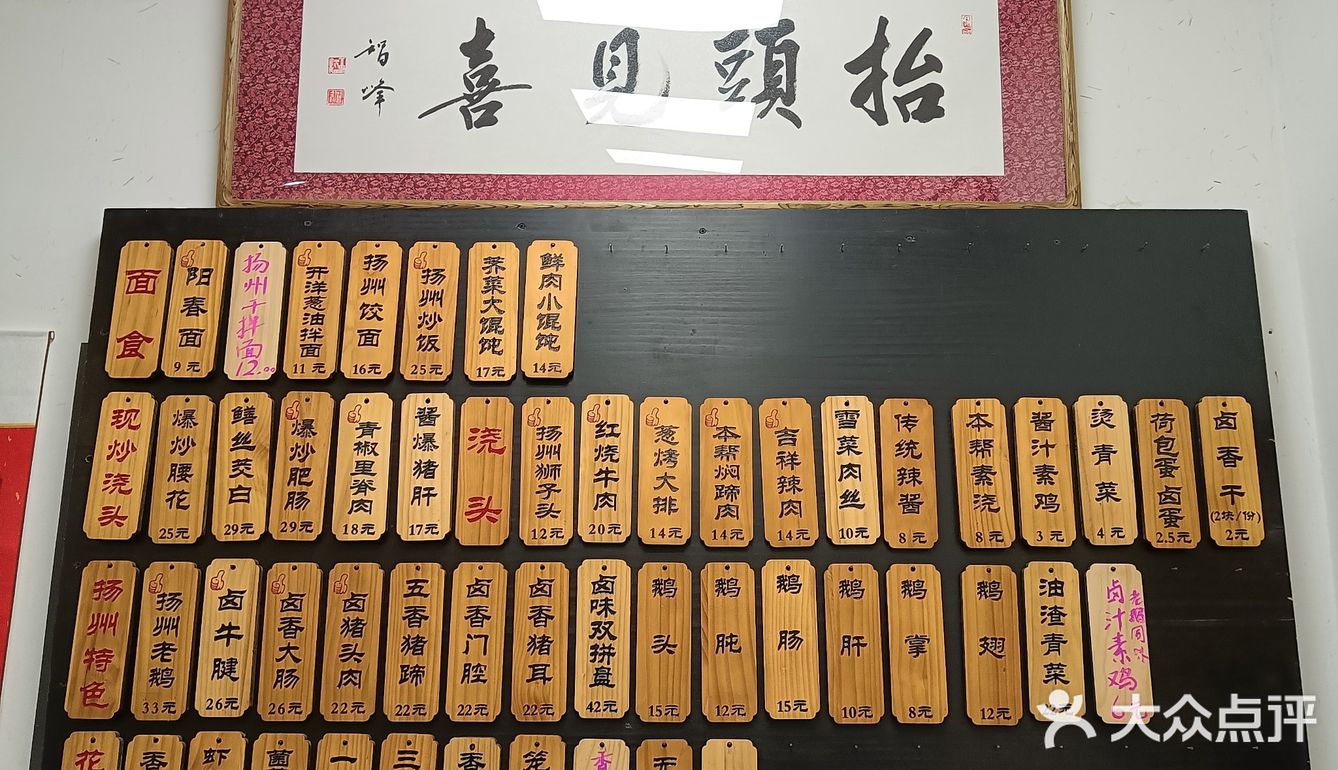 抬頭見喜
智峰
面食
阳春面
9元
扬州干拌面
12.00
开洋葱油拌面
11元
扬州饺面
16元
扬州炒饭
25元
荠菜大馄饨
17元
鲜肉小馄饨
14元
现炒浇头
爆炒腰花
25元
鳝丝茭白
29元
爆炒肥肠
29元
青椒里脊肉
18元
酱爆猪肝
17元
浇头
扬州狮子头
12元
红烧牛肉
20元
葱烤大排
14元
本帮焖蹄肉
14元
吉祥辣肉
14元
雪菜肉丝
10元
传统辣酱
8元
本帮素浇
8元
酱汁素鸡
3元
烫青菜
4元
荷包蛋卤蛋
2.5元
卤香干
(2块/1份)
2元
扬州特色
扬州老鹅
33元
卤牛腱
26元
卤香大肠
26元
卤猪头肉
22元
五香猪蹄
22元
卤香门腔
22元
卤香猪耳
22元
卤味双拼盘
42元
鹅头
15元
鹅肫
12元
鹅肠
15元
鹅肝
10元
鹅掌
8元
鹅翅
12元
油渣青菜
卤汁素鸡
花
香
虾
菌
一
三
香
笼
香
大众点评